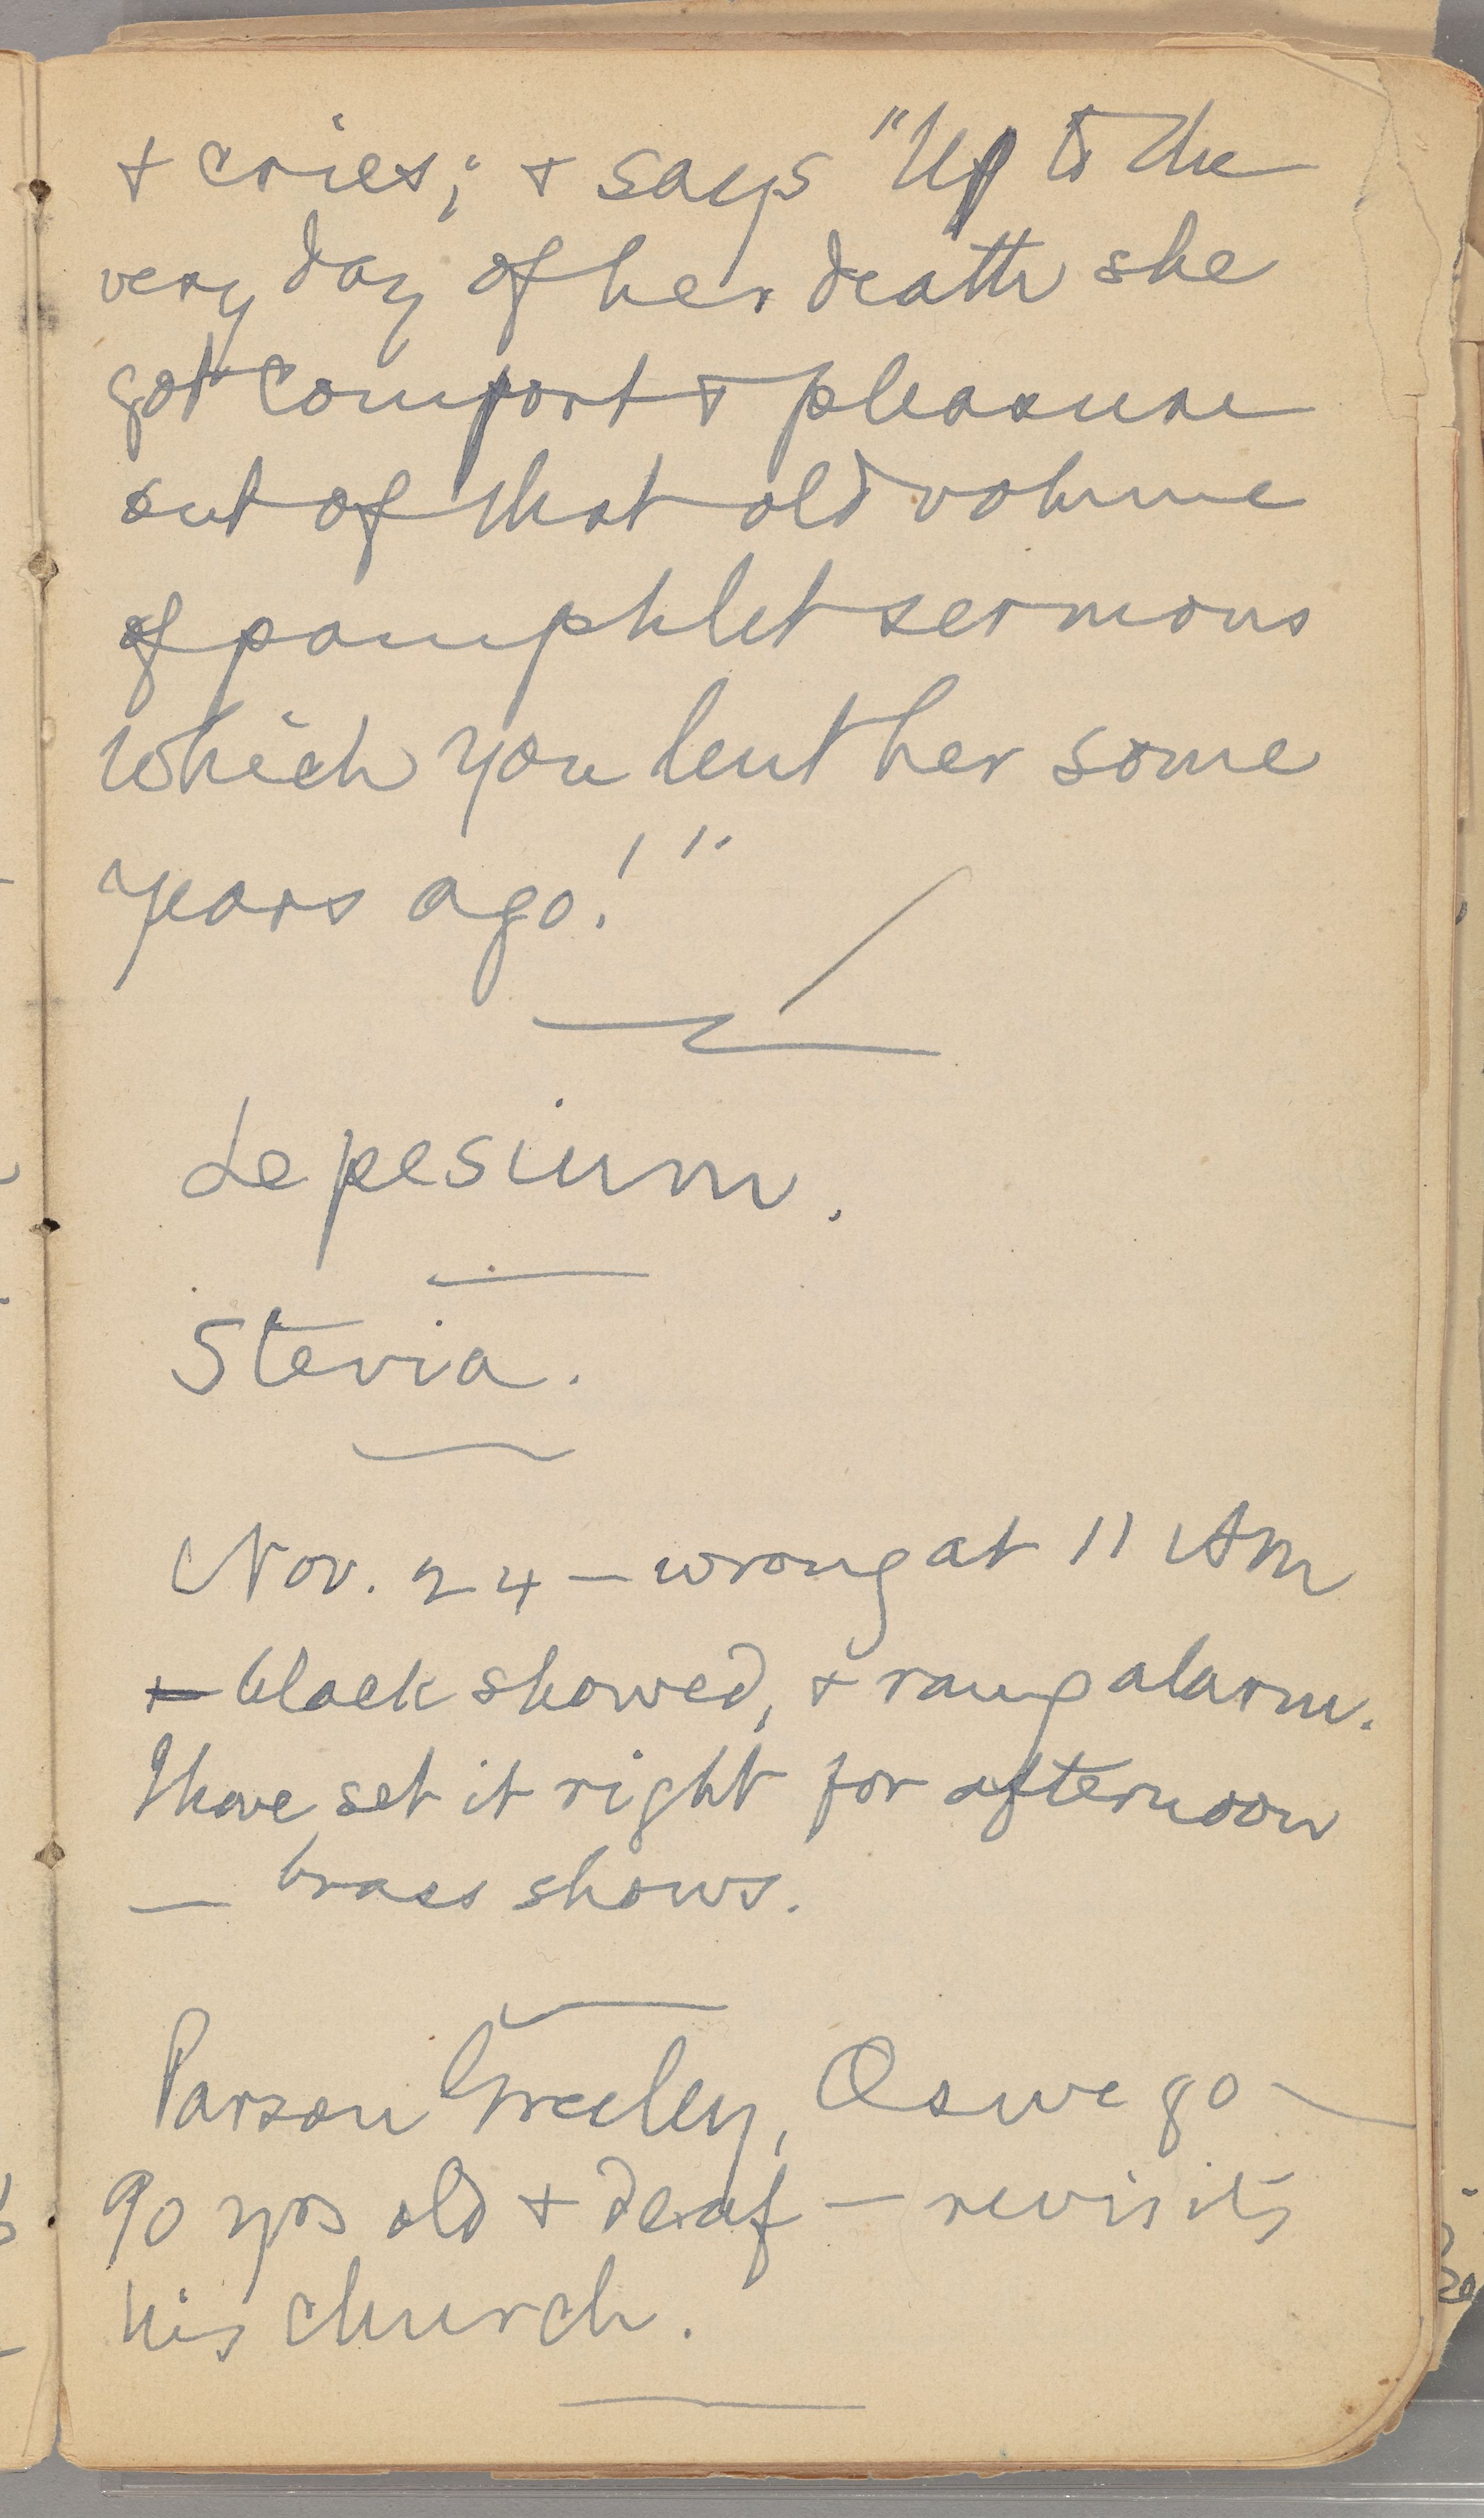 & cries; & says "Up to the
very day of her death she
got comfort & pleasure
out of that old volume
of pamphlet sermons
which you lent her some
years ago!"
Lepesium.
Stevia.
Nov. 24 — wrong at 11 AM
— black showed, & rang alarm.
I have set it right for afternoon
— brass shows.
Parson Greeley, Oswego —
90 yrs old & deaf — revisits
his church.